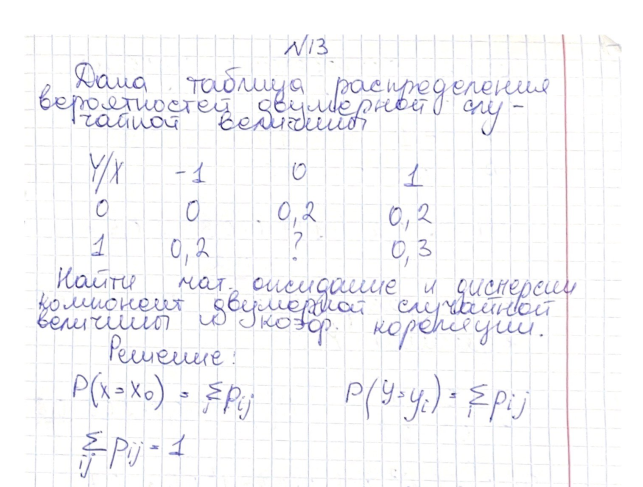 №13
Дана таблица распределения
вероятностей двумерной слу-
чайной величины
Y/X -1 0 1
0 0 0,2 0,2
1 0,2 ? 0,3
Найти мат. ожидание и дисперсии
компонент двумерной случайной
величины и коэф. кореляции.
Решение:
P(x=x₀) = Σ pij P(y=yi) = Σ pij
Σ pij = 1
ij